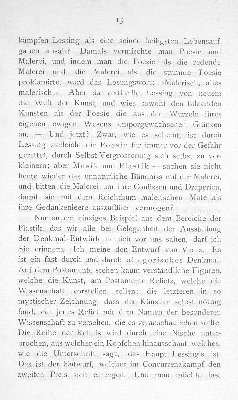 13
kämpfen Lessing als eine seiner heiligsten Lebensauf-
gaben ansah? Damals vermischte man Poesie und
Malerei, und indem man die Poesie als die redende
Malerei und die Malerei als die stumme Poesie
proklamirte, ward das Losungswort: »Malerisch, alles
malerisch.« Aber da enthüllte Lessing von neuem
die Welt der Kunst, und wies sowohl den bildenden
Künsten als der Poesie die aus der Wurzel ihres
eigenen ewigen Wesens emporgewachsenen Gränzen
an. — Und jetzt? Zwar, wie es scheint, ist durch
Lessing vielleicht die Poesie für immer vor der Gefahr
gerettet, durch Selbst-Vergrösserung sich selbst zu ver-
kleinern; aber Musik und Plastik — suchen sie nicht
heute wieder das unnatürliche Bündniss mit der Malerei,
und bitten die Malerei um ihre Coulissen und Draperien,
damit sie mit dem Reichthum malerischen Mate als
ihre Gedankenleere auszufüllen vermögen?
Nur an ein einziges Beispiel aus dem Bereiche der
Plastik, das wir alle bei Gelegenheit der Ausstellung
der Denkmal-Entwürfe an sich vor uns sahen, darf ich
Sie erinnern. Ich meine den Entwurf von
ist ein fast durch und durch allegorisches Denkmal.
Auf dem Postamente, stehen kaum verständliche Figuren,
welche die Kunst, am Postament Reliefs, welche die
Wissenschaft vorstellen sollen, die letzteren in so
mystischer Zeichnung, dass der Künstler selbst nöthig
fand, ein jedes Relief mit dem Namen der besonderen
Wissenschaft zu versehen, die es veranschaulichen sollte.
Die Reihe der Reliefs wird durch eine Nische unter-
brochen, aus welcher ein Köpfchen hinausschaut, welches,
wie die Unterschrift sagt, das Haupt Lessing's ist.
Das ist der Entwurf, welcher im Concurrenzkampf den
zweiten Preis sich errungen. Und man möchte fast